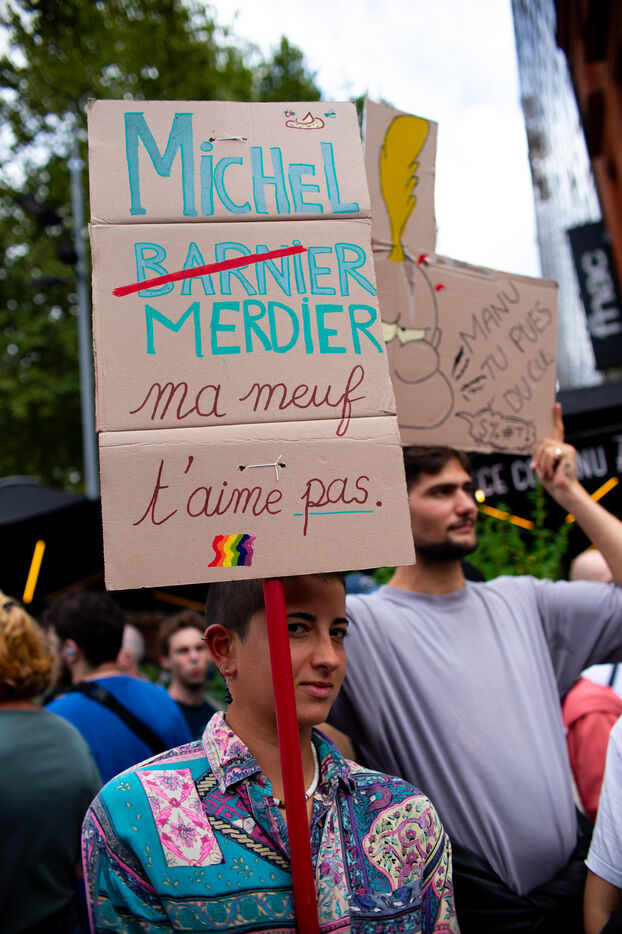 MICHEL
BARNIER
MERDIER
ma meuf
t'aime pas.
MANU
TU PUES
DU CUL